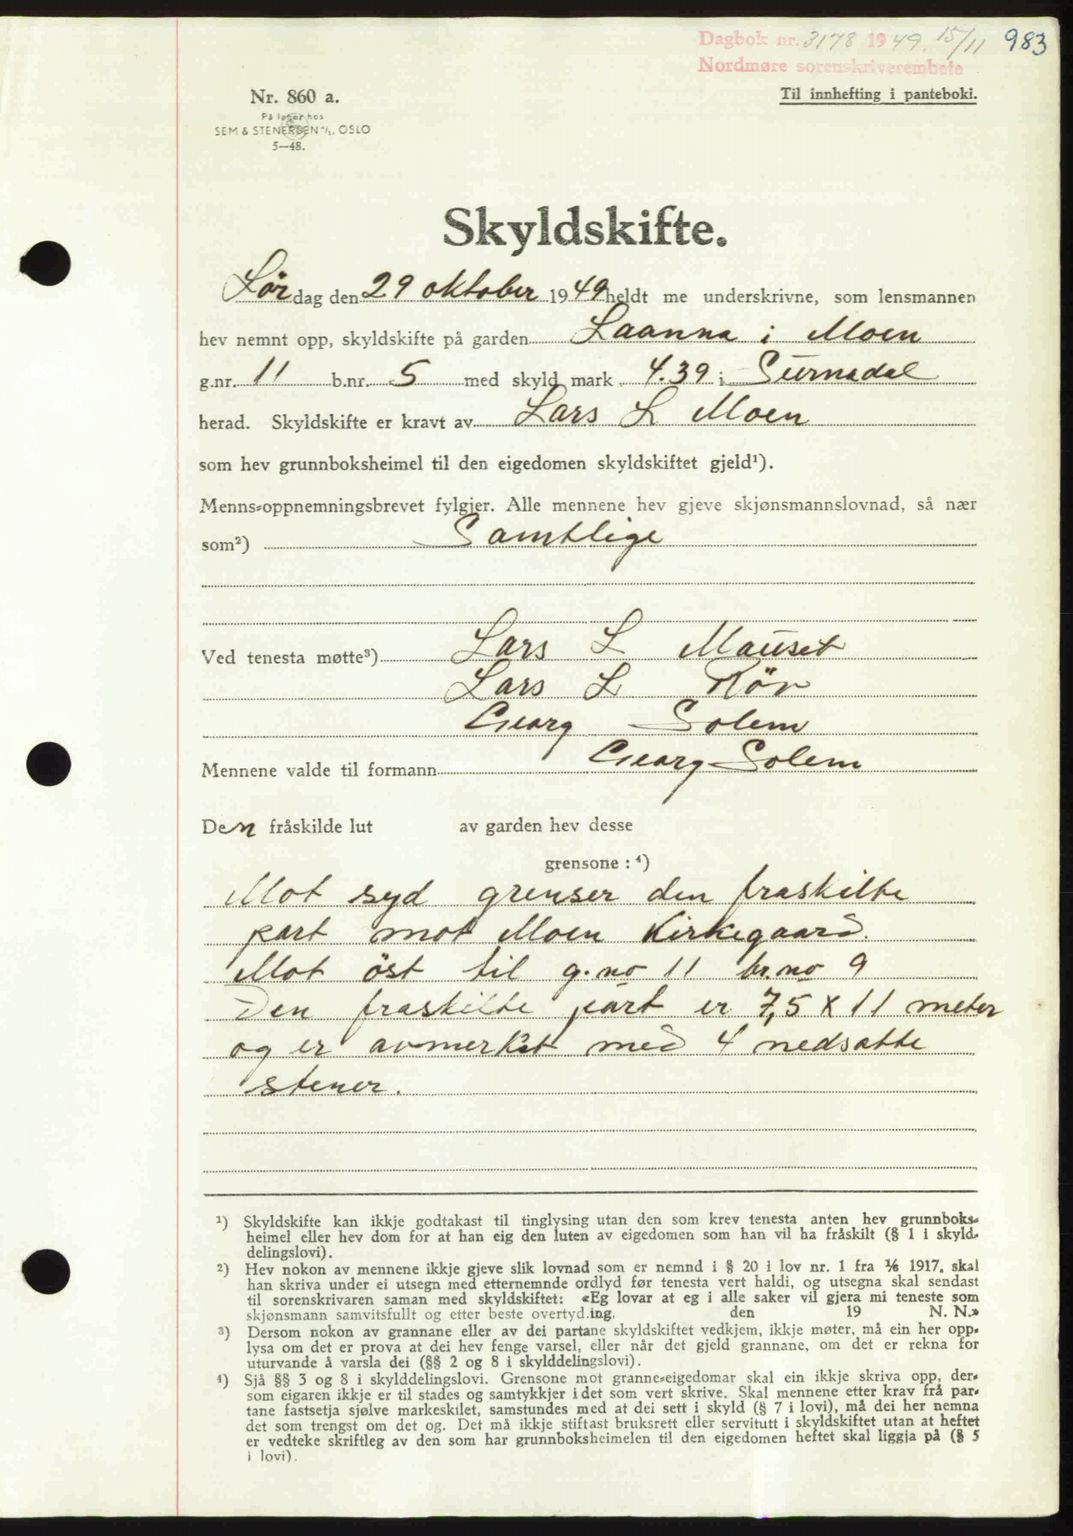 Dagbok nr. 3178 1949. 15/11 983
Nordmøre sorenskriverembete
Nr. 860 a.
Til innhefting i panteboki.
På lager hos
SEM & STENERSEN A/S, OSLO
5—48.
Skyldskifte.
Lördag den 29 oktober 1949 heldt me underskrivne, som lensmannen
hev nemnt opp, skyldskifte på garden Laanna i Moen
g.nr. 11 b.nr. 5 med skyld mark 4.39 i Surnadal
herad. Skyldskifte er kravt av Lars L Moen
som hev grunnboksheimel til den eigedomen skyldskiftet gjeld¹).
Menns-oppnemningsbrevet fylgjer. Alle mennene hev gjeve skjønsmannslovnad, så nær
som²) Samtlige
Ved tenesta møtte³) Lars L Mauset
Lars L Rör
Georg Solem
Mennene valde til formann Georg Solem
Den fråskilde lut av garden hev desse
grensone : ⁴)
Mot syd grenser den fraskilte
part mot Moen Kirkegaard.
Mot öst til g.no 11 br.no 9
Den fraskilte part er 7,5 x 11 meter
og er avmerket med 4 nedsatte
stener.
¹) Skyldskifte kan ikkje godtakast til tinglysing utan den som krev tenesta anten hev grunnboks-
heimel eller hev dom for at han eig den luten av eigedomen som han vil ha fråskilt (§ 1 i skyld-
delingslovi).
²) Hev nokon av mennene ikkje gjeve slik lovnad som er nemnd i § 20 i lov nr. 1 fra 1/6 1917, skal
han skriva under ei utsegn med etternemnde ordlyd før tenesta vert haldi, og utsegna skal sendast
til sorenskrivaren saman med skyldskiftet: «Eg lovar at eg i alle saker vil gjera mi teneste som
skjønsmann samvitsfullt og etter beste overtyding. den 19 N. N.»
³) Dersom nokon av grannane eller av dei partane skyldskiftet vedkjem, ikkje møter, må ein her opp-
lysa om det er prova at dei hev fenge varsel, eller når det gjeld grannane, om det er rekna for
uturvande å varsla dei (§§ 2 og 8 i skylddelingslovi).
⁴) Sjå §§ 3 og 8 i skylddelingslovi. Grensone mot granne-eigedomar skal ein ikkje skriva opp, der-
som eigaren ikkje er til stades og samtykkjer i det som vert skrive. Skal mennene etter krav frå par-
tane fastsetja sjølve markeskilet, samstundes med at dei sett i skyld (§ 7 i lovi), må dei her nemna
det som trengst om det og. Det må ikkje stiftast bruksrett eller servitutt i skyldskiftet utan at heftet
er vedteke skriftleg av den som har grunnboksheimelen til den eigedomen heftet skal liggja på (§ 5
i lovi).